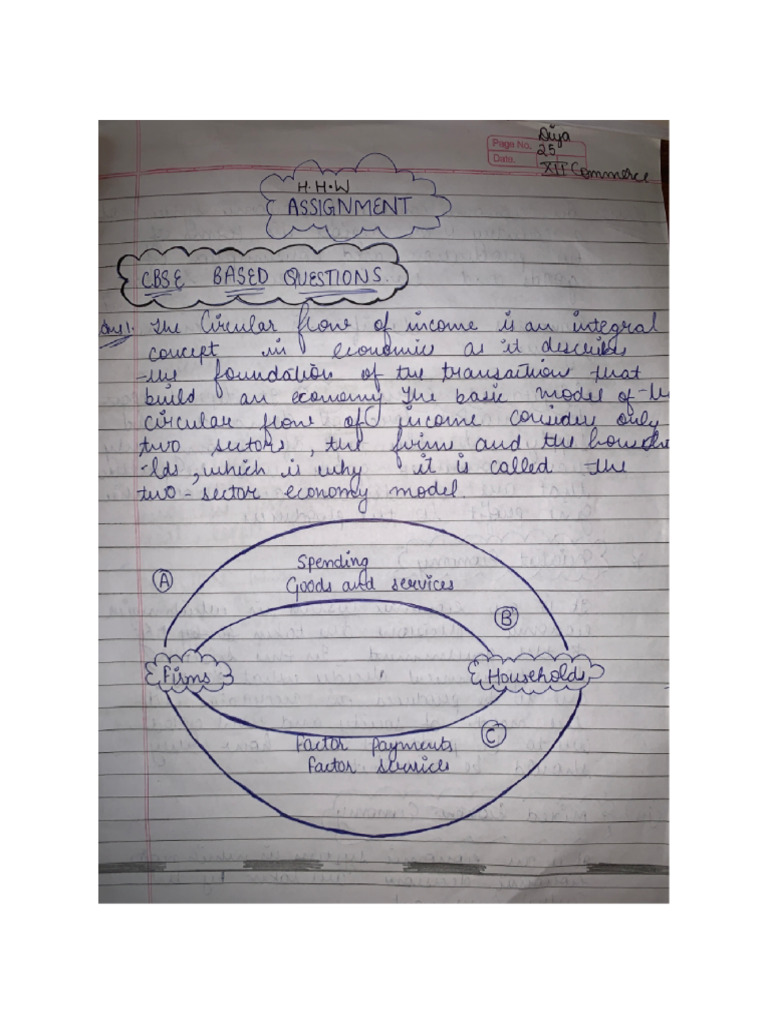 Page No.
Diya
Date.
25
XII Commerce
H.H.W
ASSIGNMENT
CBSE BASED QUESTIONS.
Ans 1. The Circular flow of income is an integral
concept in economics as it describes
the foundation of the transactions that
build an economy. The basic model of the
circular flow of income considers only
two sectors, the firms and the househo
-lds, which is why it is called the
two-sector economy model.
Spending
Goods and services
A
B
Firms
Households
C
Factor payments
Factor services